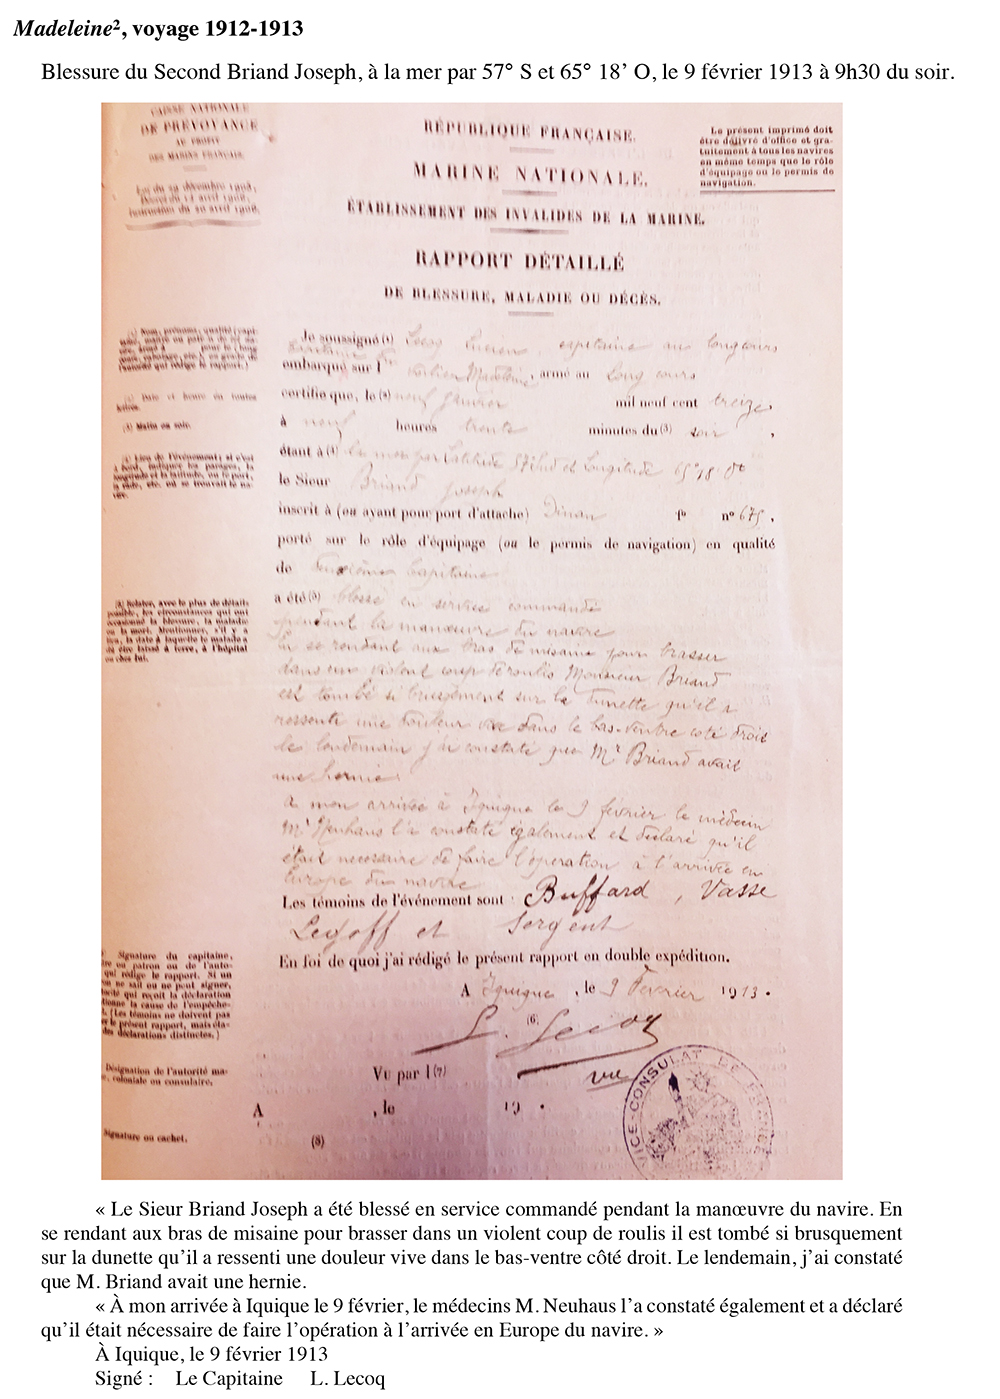 Madeleine², voyage 1912-1913
Blessure du Second Briand Joseph, à la mer par 57° S et 65° 18’ O, le 9 février 1913 à 9h30 du soir.
CAISSE NATIONALE
DE PRÉVOYANCE
AU PROFIT
DES MARINS FRANÇAIS.
Loi du 29 décembre 1905,
Décret du 14 avril 1906,
Instruction du 20 avril 1906.
RÉPUBLIQUE FRANÇAISE.
MARINE NATIONALE.
ÉTABLISSEMENT DES INVALIDES DE LA MARINE.
RAPPORT DÉTAILLÉ
DE BLESSURE, MALADIE OU DÉCÈS.
Le présent imprimé doit
être délivré d'office et gra-
tuitement à tous les navires
en même temps que le rôle
d'équipage ou le permis de
navigation.
Je soussigné (1) Lecoq Lucien, capitaine au longcours
embarqué sur l Madeleine, armé au long cours
certifie que, le (2) neuf janvier mil neuf cent treize,
à neuf heures trente minutes du (3) soir,
étant à (4) la mer par Latitude 57 Sud et Longitude 65°18 O
le Sieur Briand Joseph
inscrit à (ou ayant pour port d'attache) Dinan fº nº 675,
porté sur le rôle d'équipage (ou le permis de navigation) en qualité
de Deuxième Capitaine
a été (5) blessé en service commandé
pendant la manœuvre du navire
En se rendant aux bras de misaine pour brasser
dans un violent coup de roulis Monsieur Briand
est tombé si brusquement sur la dunette qu'il a
ressenti une douleur vive dans le bas-ventre coté droit
le lendemain j'ai constaté que Mr Briand avait
une hernie.
A mon arrivée à Iquique le 9 février le médecin
Mr Neuhaus l'a constaté également et déclaré qu'il
était necessaire de faire l'opération à l'arrivée en
Europe du navire
Les témoins de l'événement sont : Buffard, Vasse
Legoff et Sergent
En foi de quoi j'ai rédigé le présent rapport en double expédition.
A Iquique, le 9 Fevrier 1913.
(6)
L. Lecoq
Vu par l (7)
vu
A , le 19 .
(8)
(2) Date et heure en toutes
lettres.
(3) Matin ou soir.
(4) Lieu de l'événement; si c'est
à bord, indiquer les parages, la
longitude et la latitude, ou le port,
la rade, etc. où se trouvait le na-
vire.
(5) Relater, avec le plus de détails
possible, les circonstances qui ont
occasionné la blessure, la maladie
ou la mort. Mentionner, s'il y a
lieu, la date à laquelle le malade a
été laissé à terre, à l'hôpital
ou chez lui.
Signature du capitaine,
ou patron ou de l'auto-
qui rédige le rapport. Si un
ne sait ou ne peut signer,
qui reçoit la déclaration
la cause de l'empêche-
(Les témoins ne doivent pas
le présent rapport, mais
des déclarations distinctes.)
Désignation de l'autorité ma-
, coloniale ou consulaire.
Signature ou cachet.
VICE-CONSULAT DE FRANCE
« Le Sieur Briand Joseph a été blessé en service commandé pendant la manœuvre du navire. En
se rendant aux bras de misaine pour brasser dans un violent coup de roulis il est tombé si brusquement
sur la dunette qu’il a ressenti une douleur vive dans le bas-ventre côté droit. Le lendemain, j’ai constaté
que M. Briand avait une hernie.
« À mon arrivée à Iquique le 9 février, le médecins M. Neuhaus l’a constaté également et a déclaré
qu’il était nécessaire de faire l’opération à l’arrivée en Europe du navire. »
À Iquique, le 9 février 1913
Signé : Le Capitaine L. Lecoq